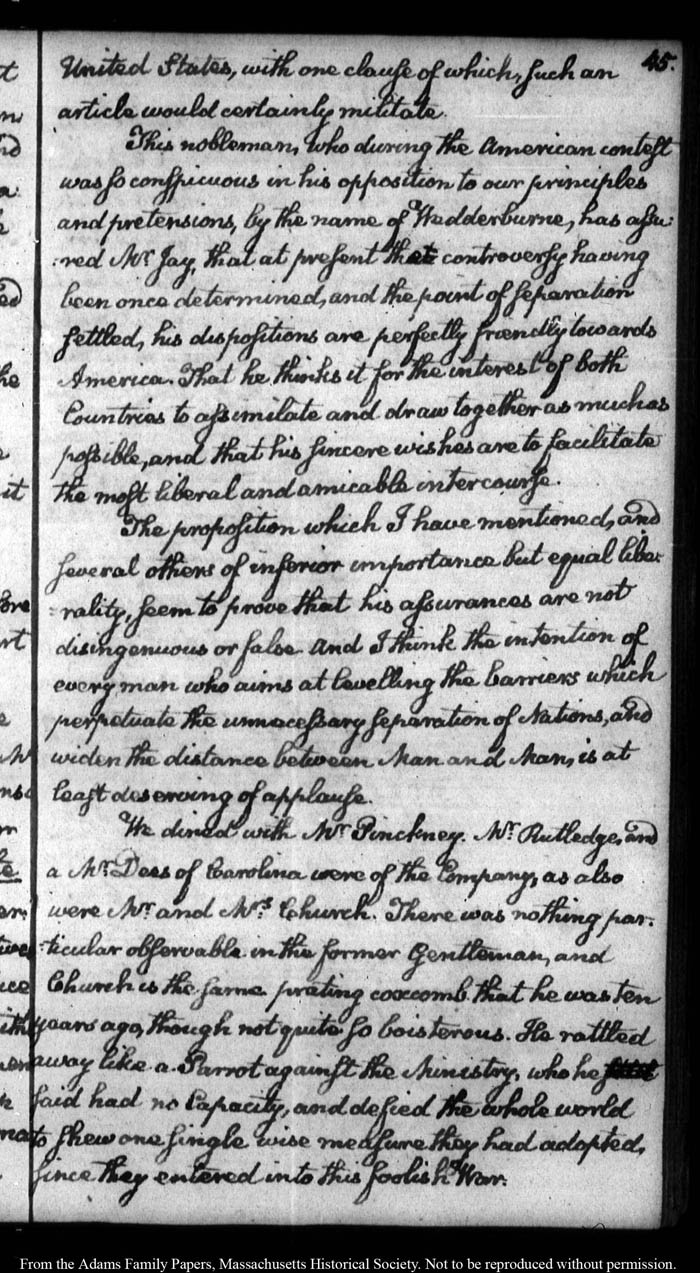 45.
United States, with one clause of which, such an
article would certainly militate.
This nobleman, who during the American contest
was so conspicuous in his opposition to our principles
and pretensions, by the name of Wedderburne, has assu:
:red Mr Jay, that at present that controversy having
been once determined, and the point of separation
settled, his dispositions are perfectly friendly towards
America. That he thinks it for the interest of both
Countries to assimilate and draw together as much as
possible, and that his sincere wishes are to facilitate
the most liberal and amicable intercourse.
The proposition which I have mentioned, and
several others of inferior importance but equal libe:
:rality, seem to prove that his assurances are not
disingenuous or false. And I think the intention of
every man who aims at levelling the barriers which
perpetuate the unnecessary separation of Nations, and
widen the distance between Man and Man, is at
least deserving of applause.
We dined with Mr Pinckney. Mr Rutledge, and
a Mr Deas of Carolina were of the Company, as also
were Mr and Mrs Church. There was nothing par:
:ticular observable in the former Gentleman, and
Church is the same prating coxcomb that he was ten
years ago, though not quite so boisterous. He rattled
away like a Parrot against the Ministry, who he
said had no Capacity, and defied the whole world
to shew one single wise measure they had adopted,
since they entered into this foolish War.
From the Adams Family Papers, Massachusetts Historical Society. Not to be reproduced without permission.